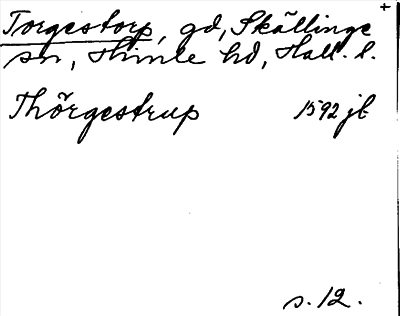 Torgestorp, gd, Skällinge +
sn, Himle hd, Hall. l.
Thörgestrup 1592 jb
s. 12.